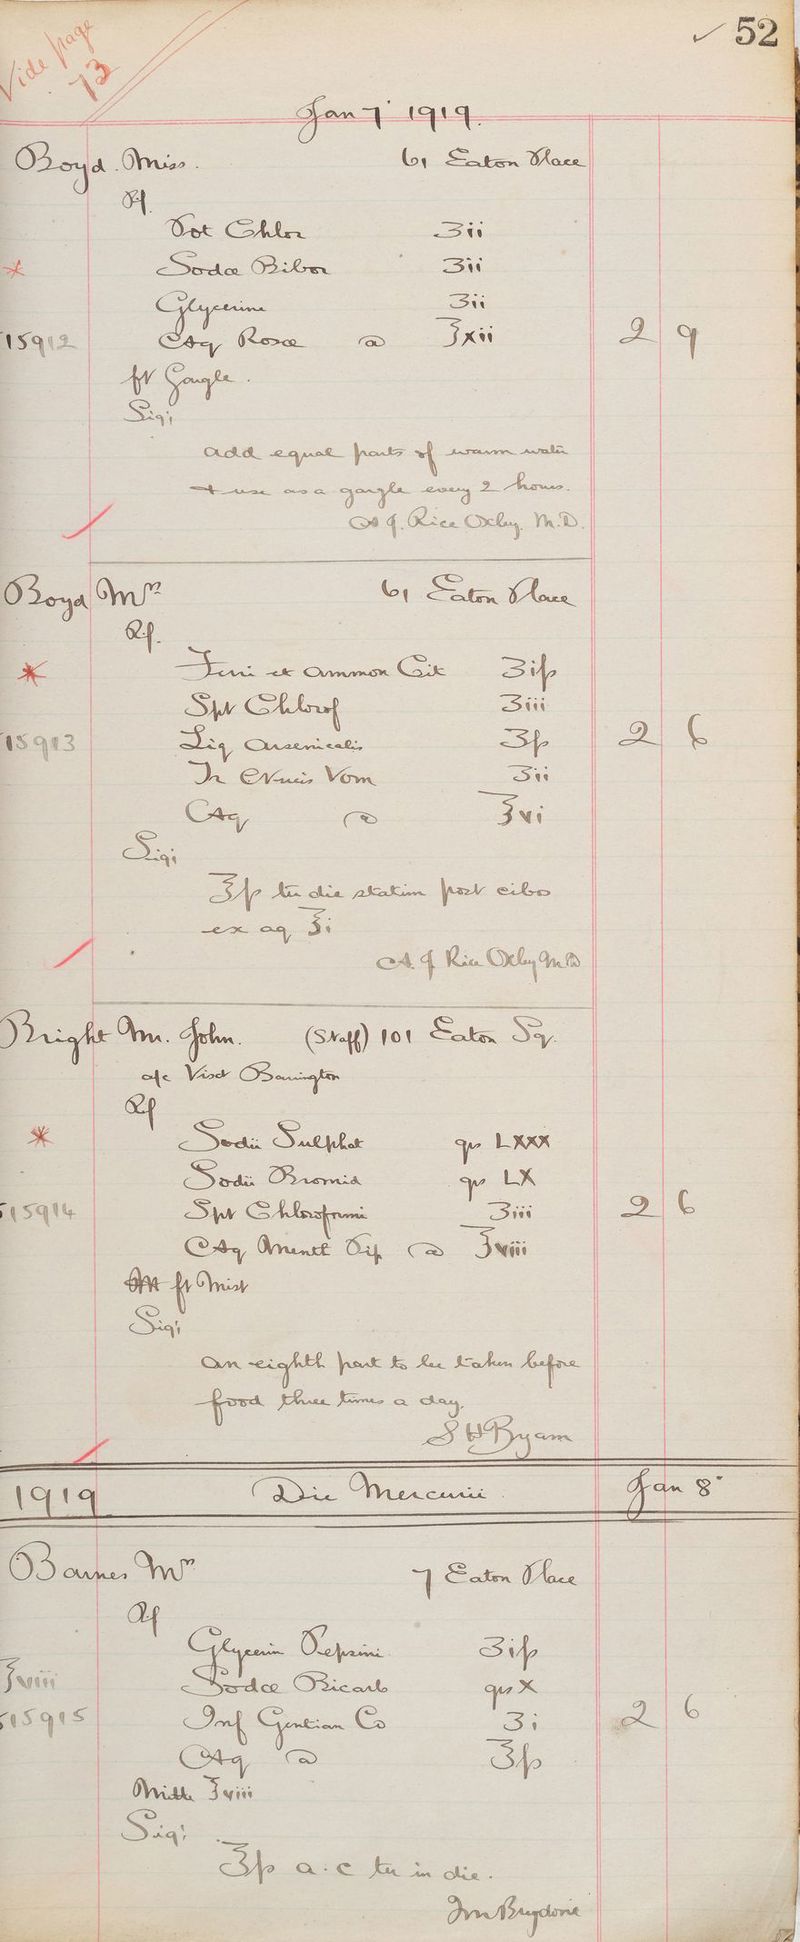 Vide page 73
✓ 52
Jan 7 1919.
Boyd. Miss. 61 Eaton Place
Rf.
Pot Chlor ʒii
* Sodae Bibor ʒii
Glycerine ʒii
15912 Aq Rosae @ ℥xii 2 9
ft Gargle.
Sig;
add equal parts of warm water
+ use as a gargle every 2 hours.
A. J. Rice Oxley. M.D.
Boyd Mrs 61 Eaton Place
Rf.
* Ferri et Ammon Cit ʒiβ
Spt Chlorof ʒiii
15913 Liq Arsenicalis ʒβ 2 6
Tr Nucis Vom ʒii
Aq @ ℥vi
Sig;
℥β ter die statim post cibos
ex aq ℥i
A. J Rice Oxley M.D
Bright Mr. John. (Staff) 101 Eaton Sq.
a/c Visct Barrington
Rf
* Sodii Sulphat grs LXXX
Sodii Bromid grs LX
15914 Spt Chloroformi ʒiii 2 6
Aq Menth Pip @ ℥viii
ft Mist
Sig;
an eighth part to be taken before
food three times a day.
S H Byam
1919 Die Mercurii Jan 8
Barnes Mrs 7 Eaton Place
Rf
Glycerin Pepsini ʒiβ
℥viii Sodae Bicarb grs X
15915 Inf Gentian Co ʒi 2 6
Aq @ ℥β
Mitte ℥viii
Sig;
℥β a.c ter in die.